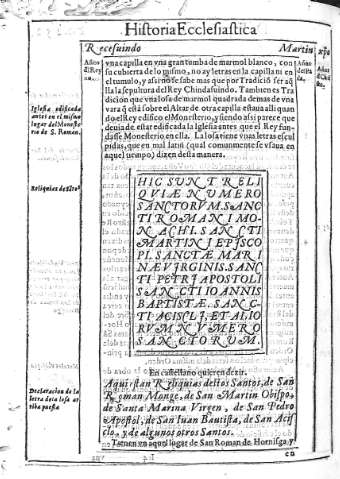 Historia Ecclesiastica
Recesuindo
Martin
vna capilla en vna gran tumba de marmol blanco, con
su cubierta de lo mismo, no ay letras en la capilla ni en
el tumulo, y assi no se sabe mas que por Tradiciõ ser aq̃
lla la sepultura del Rey Chindasuindo. Tambien es Tra
dicion que vna losa de marmol quadrada de mas de vna
vara q̃ està sobre el Altar de otra capilla estaua alli quan
do el Rey edifico el Monesterio, y siendo assi parece que
deuia de estar edificada la Iglesia antes que el Rey fun
dasse Monesterio en ella. La losa tiene vnas letras escul
pidas, que en mal latin (qual comunmente se vsaua en
aquel tiempo) dizen desta manera.
Iglesia edificada
antes en el mismo
lugar del Moneste
rio de S. Roman.
Reliquias de Stos
HIC SUNT RELI
QVIÆ NUMERO
SANCTORVM. SANC
TI ROMANI MO-
NACHI. SANCTI
MARTINI EPISCO
PI. SANCTÆ MARI
NÆ VIRGINIS. SANC
TI PETRI APOSTOLI
SANCTI IOANNIS
BAPTISTÆ. SANC-
TI ACISCLI, ET ALIO
RVM NVMERO
SANCTORUM.
En castellano quieren dezir.
Declaracion de la
letra de la losa ar
riba puesta
Aqui stan Reliquias destos Santos, de San
Roman Monge, de San Martin Obispo,
de Santa Marina Virgen, de San Pedro
Apostol, de San Iuan Bautista, de San Acis
clo, y de algunos otros Santos.
Tienen en aquel lugar de San Roman de Hornisga, y
en